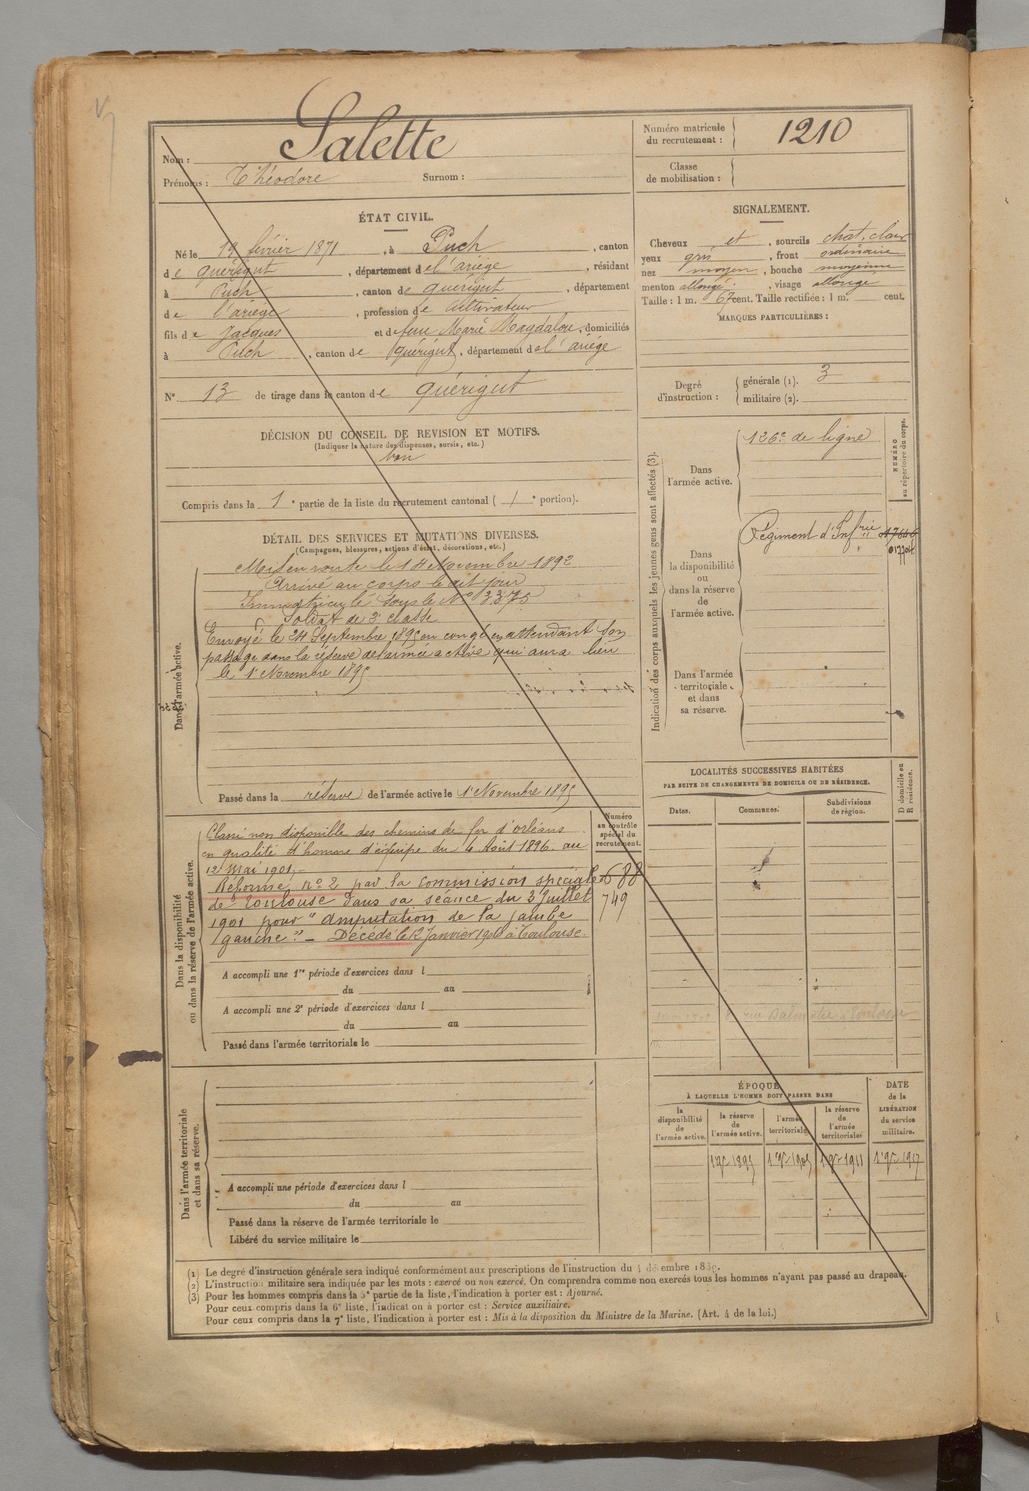 Nom : Salette
Prénoms : Théodore Surnom :
Numéro matricule du recrutement : 1210
Classe de mobilisation :
ÉTAT CIVIL.
Né le 19 février 1871, à Puch, canton
de Quérigut, département de l'ariège, résidant
à Puch, canton de Quérigut, département
de l'ariège, profession de Cultivateur
fils de Jacques et de feue Marie Magdalou, domiciliés
à Puch, canton de Quérigut, département de l'ariège
N° 13 de tirage dans le canton de Quérigut
SIGNALEMENT.
Cheveux et, sourcils chat. clair
yeux gris, front ordinaire
nez moyen, bouche moyenne
menton allongé, visage allongé
Taille : 1 m. 67 cent. Taille rectifiée : 1 m. cent.
MARQUES PARTICULIÈRES :
Degré d'instruction : générale (1). 3
militaire (2).
DÉCISION DU CONSEIL DE REVISION ET MOTIFS.
(Indiquer la nature des dispenses, sursis, etc.)
bon
Compris dans la 1e partie de la liste du recrutement cantonal ( 1 e portion).
DÉTAIL DES SERVICES ET MUTATIONS DIVERSES.
(Campagnes, blessures, actions d'éclat, décorations, etc.)
Dans l'armée active.
Mis en route le 14 Novembre 1892
Arrivé au corps le dit jour
Immatriculé sous le N° 3375
Soldat de 2e classe
Envoyé le 24 Septembre 1895 en congé en attendant son
passage dans la réserve de l'armée active qui aura lieu
le 1er Novembre 1895
Passé dans la réserve de l'armée active le 1er Novembre 1895
Indication des corps auxquels les jeunes gens sont affectés (3).
NUMÉRO au répertoire du corps.
Dans l'armée active.
126e de ligne
Dans la disponibilité ou dans la réserve de l'armée active.
Régiment d'Infrie
Dans l'armée territoriale et dans sa réserve.
Dans la disponibilité ou dans la réserve de l'armée active.
Numéro au contrôle spécial du recrutement.
Classé non disponible des chemins de fer d'orléans
en qualité d'homme d'équipe du 4 Août 1896 au
12 Mai 1901.
Réformé n° 2 par la commission spéciale
de Toulouse dans sa séance du 3 Juillet
1901 pour "amputation de la jambe
gauche". Décédé le 12 Janvier 1906 à Toulouse.
688
749
A accompli une 1re période d'exercices dans l
du au
A accompli une 2e période d'exercices dans l
du au
Passé dans l'armée territoriale le
LOCALITÉS SUCCESSIVES HABITÉES
PAR SUITE DE CHANGEMENTS DE DOMICILE OU DE RÉSIDENCE.
Dates. Communes. Subdivisions de région. D domicile ou R résidence.
rue Dalmatie à Toulouse
ÉPOQUE
À LAQUELLE L'HOMME DOIT PASSER DANS
la disponibilité de l'armée active. la réserve de l'armée active. l'armée territoriale. la réserve de l'armée territoriale.
DATE de la LIBÉRATION du service militaire.
1er 9bre 1895 1er 9bre 1905 1er 9bre 1911 1er 9bre 1917
Dans l'armée territoriale et dans sa réserve.
A accompli une période d'exercices dans l
du au
Passé dans la réserve de l'armée territoriale le
Libéré du service militaire le
(1) Le degré d'instruction générale sera indiqué conformément aux prescriptions de l'instruction du 4 décembre 1889.
(2) L'instruction militaire sera indiquée par les mots : exercé ou non exercé. On comprendra comme non exercés tous les hommes n'ayant pas passé au drapeau.
(3) Pour les hommes compris dans la 5e partie de la liste, l'indication à porter est : Ajourné.
Pour ceux compris dans la 6e liste, l'indication à porter est : Service auxiliaire.
Pour ceux compris dans la 7e liste, l'indication à porter est : Mis à la disposition du Ministre de la Marine. (Art. 4 de la loi.)